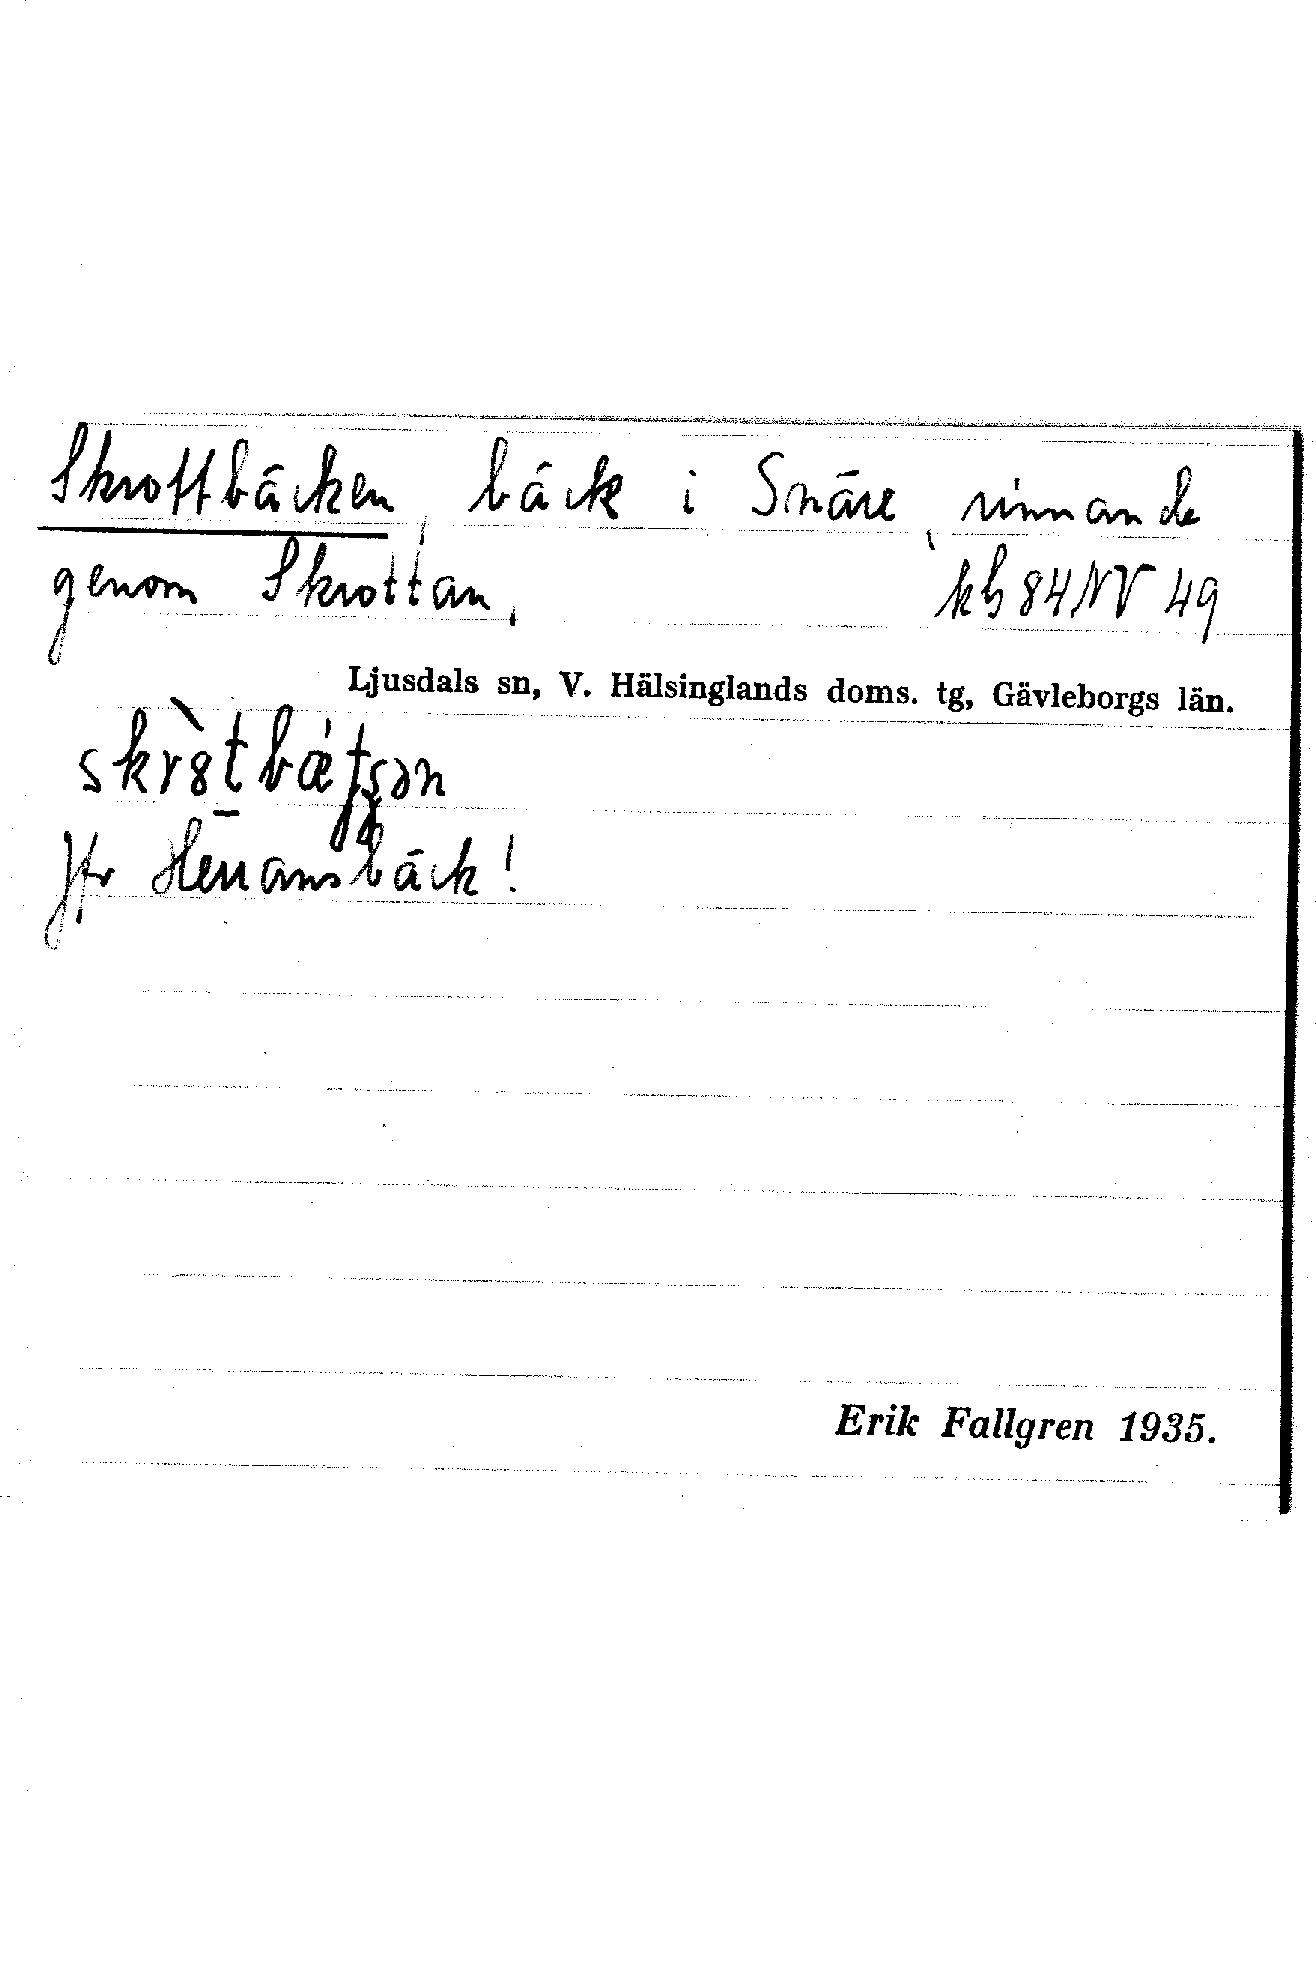 Skrottbäcken, bäck i Snäre, rinnande
genom Skrottan, kb 84 NV 49
Ljusdals sn, V. Hälsinglands doms. tg, Gävleborgs län.
Jfr Herransbäck!
Erik Fallgren 1935.